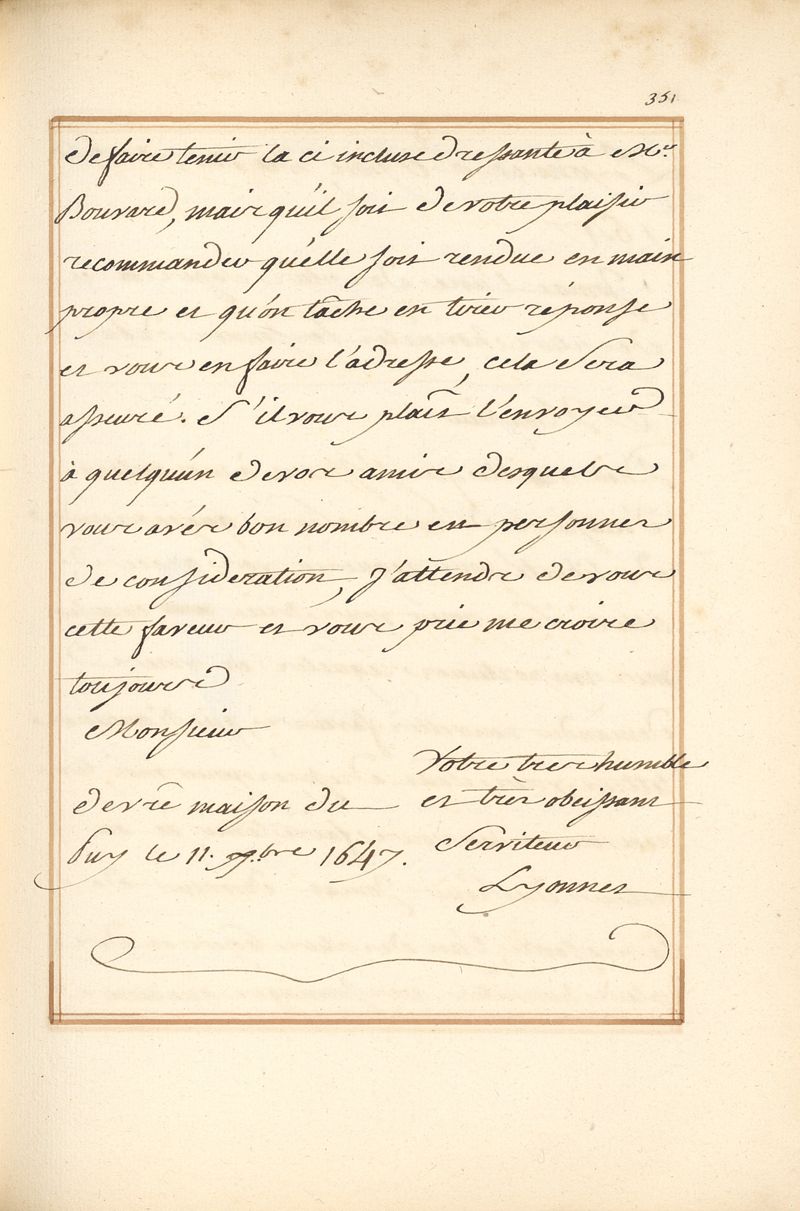 351
de faire tenir la ci incluse dressante à Mr.
Bouvard, mais qu'il soit de votre plaisir
recommander qu'elle soit rendue en main
propre et qu'on tâche en tirer réponse
et vous en faire l'adresse, cela sera
asseuré. S'il vous plaît l'envoyer
à quelqu'un de vos amis desquels
vous avés bon nombre en personnes
de consideration, j'attends de vous
cette faveur et vous prie me croire
toujours
Monsieur
Votre tres humble
de vre maison du et très obeissant
Puy le 11. bre 1647. Serviteur
Lyonnes